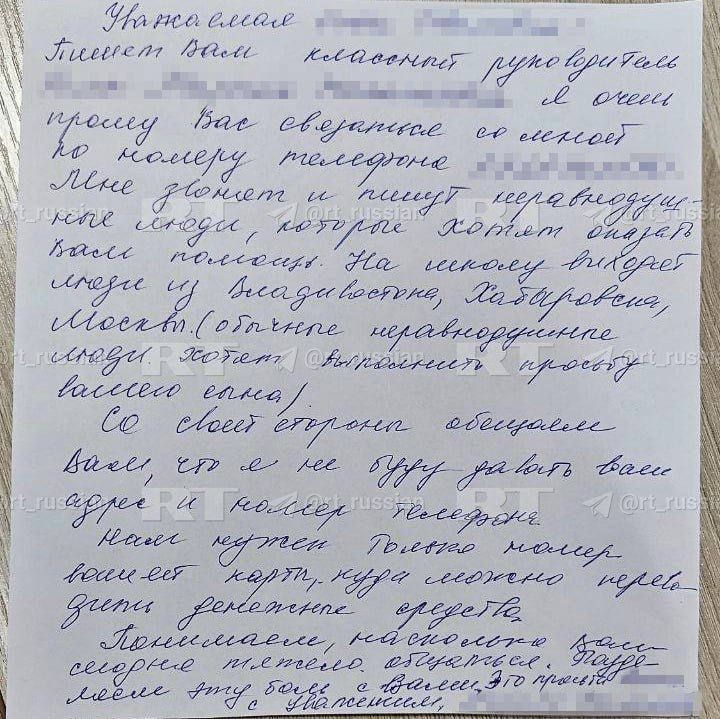 Уважаемая
Пишет Вам классный руководитель
Я очень
прошу Вас связаться со мной
по номеру телефона
Мне звонят и пишут неравнодуш-
ные люди, которые хотят оказать
Вам помощь. На школу выходят
люди из Владивостока, Хабаровска,
Москвы. (обычные неравнодушные
люди хотят выполнить просьбу
вашего сына)
Со своей стороны обещаем
Вам, что я не буду давать ваш
адрес и номер телефона
Нам нужен только номер
вашей карты, куда можно перево-
дить денежные средства.
Понимаем, насколько Вам
сегодня тяжело общаться. Разде-
ляем эту боль с Вами. Это
с уважением,
RT @rt_russian
RT @rt_russian
RT @rt_russian